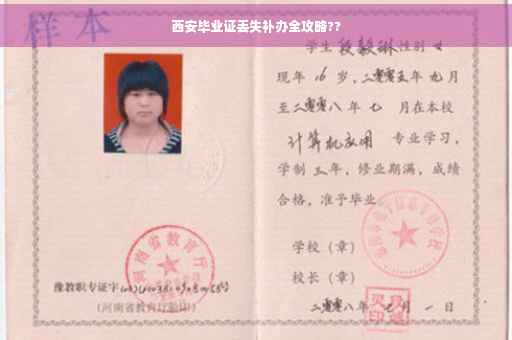 西安毕业证丢失补办全攻略??
样本
学生 段毅琳 性别 女
现年 16 岁,二零零五年 九 月
至二零零八年 七 月在本校
计算机应用 专业学习,
学制 三 年,修业期满,成绩
合格,准予毕业
学校(章)
校长(章)
二零零八年 七 月 一 日
河南省教育厅
豫教职专证字
(河南省教育厅验印)